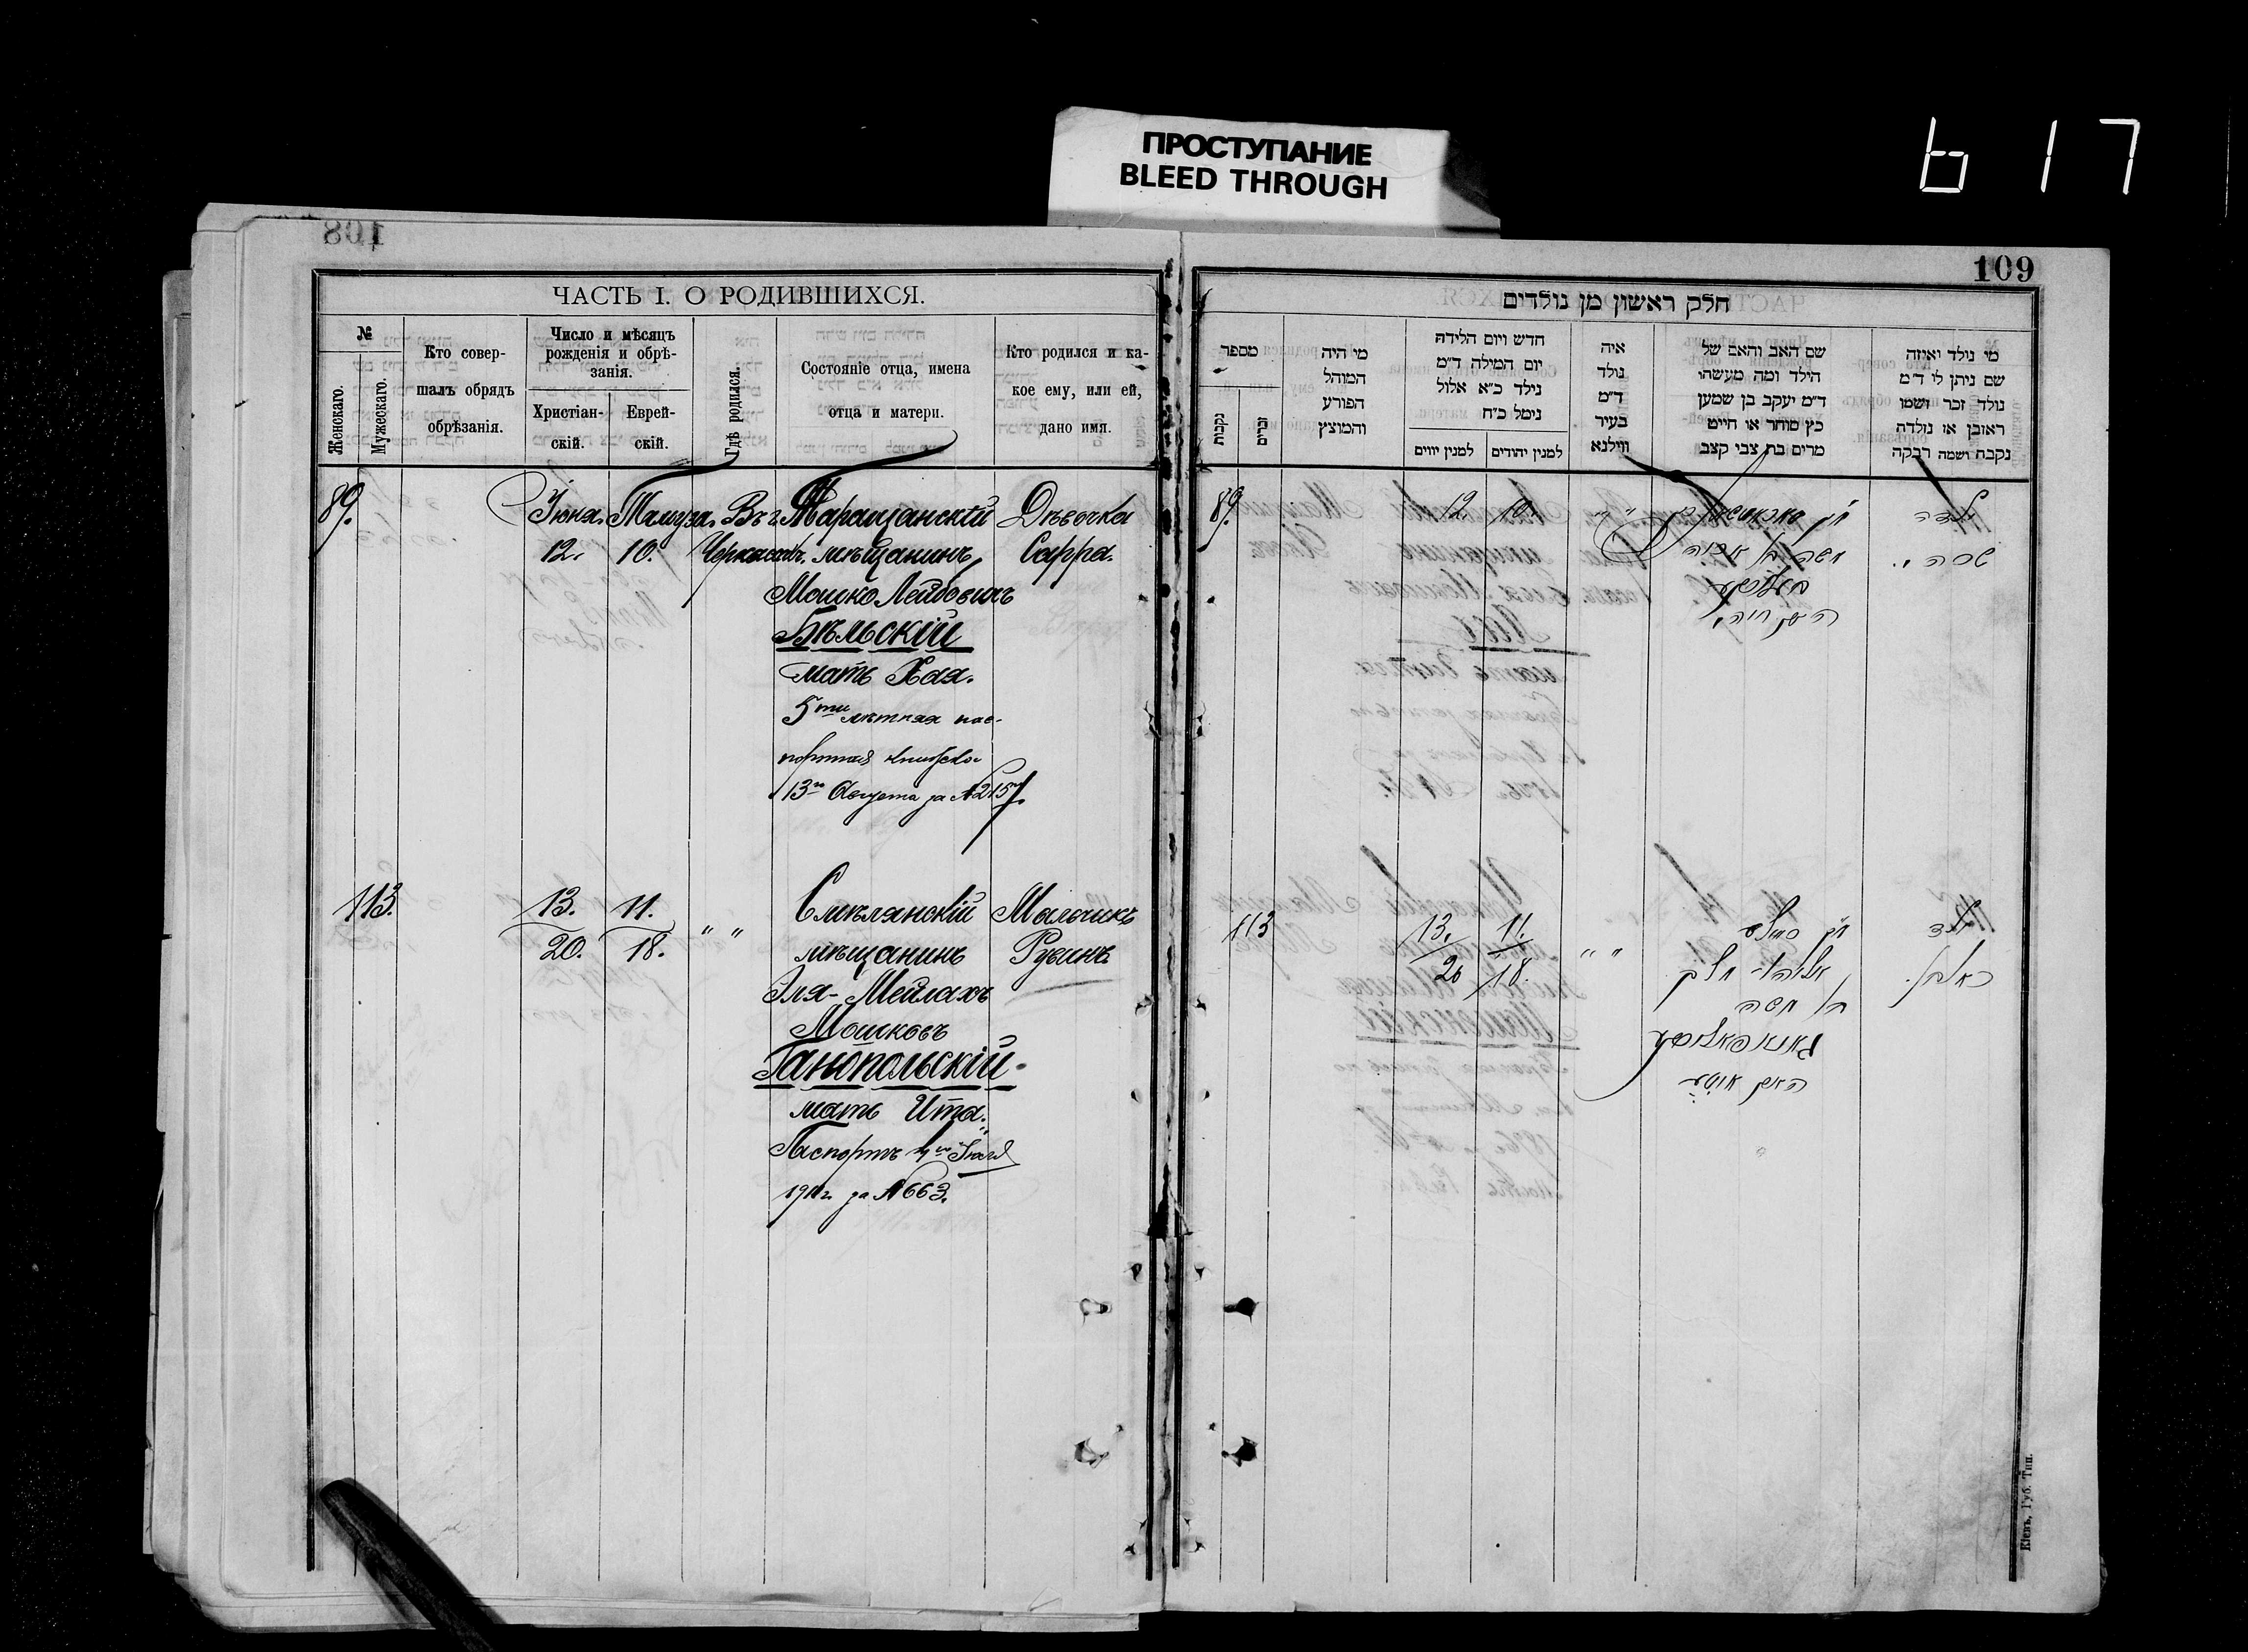 ПРОСТУПАНИЕ
BLEED THROUGH
617
108
ЧАСТЬ I. О РОДИВШИХСЯ.
№
Женскаго.
Мужескаго.
Кто совер-
шалъ обрядъ
обрѣзанія.
Число и мѣсяцъ
рожденія и обрѣ-
занія.
Христіан-
скій.
Еврей-
скій.
Гдѣ родился.
Состояніе отца, имена
отца и матери.
Кто родился и ка-
кое ему, или ей,
дано имя.
89.
Іюня.
12.
Тамуза.
10.
Въ г.
Черкассахъ.
Таращанскій
мѣщанинъ
Мошко Лейбовичъ
Бѣльскій
мать Хая.
5ти лѣтняя пас-
портная книжка
13го Августа за №
Дѣвочка
Сарра.
113.
13.
20.
11.
18.
" "
Смѣлянскій
мѣщанинъ
Эля-Мейлахъ
Мошковъ
Ганопольскій
мать Ита.
Паспортъ
за № 663.
Мальчикъ
Рувинъ
109
חלק ראשון מן נולדים
מספר
נקבות
זכרים
מי היה
המוהל
הפורע
והמוצץ
חדש ויום הלידה
יום המילה ד״מ
נילד כ״א אלול
נימל כ״ח
למנין יווים
למנין יהודים
איה
נולד
ד״מ
בעיר
ווילנא
שם האב והאם של
הילד ומה מעשהו
ד״מ יעקב בן שמעון
כץ סוחר או חייט
מרים בת צבי קצב
מי נולד ואיזה
שם ניתן לו ד״מ
נולד זכר ושמו
ראובן או נולדה
נקבה ושמה רבקה
89.
12.
10.
" "
משה בן אריה
האם חיה
ילדה
שרה
113
13.
20
11.
18.
" "
אליהו מלך
בן משה
האם איטע
ילד
ראובן.
Кіевъ, Губ. Тип.